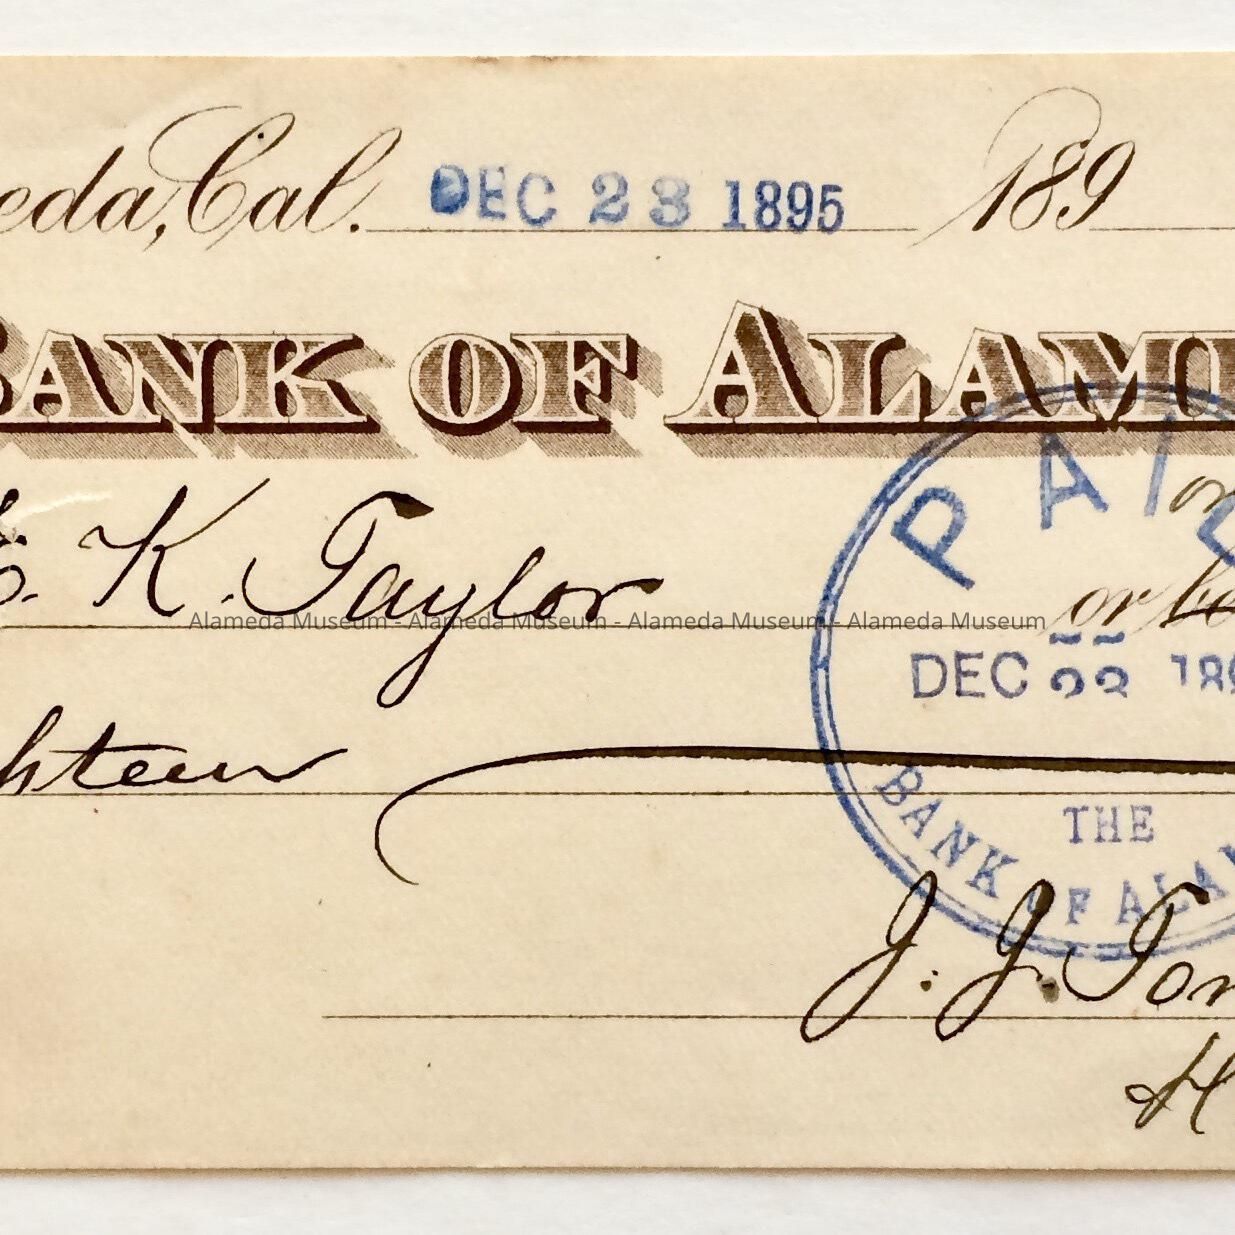 eda, Cal. DEC 23 1895 189
BANK OF ALAM
PAID
or
E. K. Taylor
or be
Alameda Museum - Alameda Museum - Alameda Museum - Alameda Museum
DEC 23 189
hteen
THE
BANK OF ALAM
J. J. Ton
H